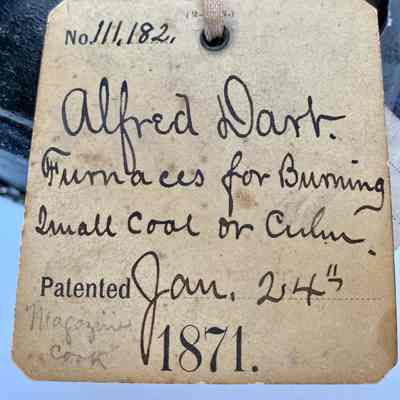 No. 111,182.
Alfred Dart.
Furnaces for Burning
Small Coal or Culm.
Patented Jan. 24"
1871.
"Magazine